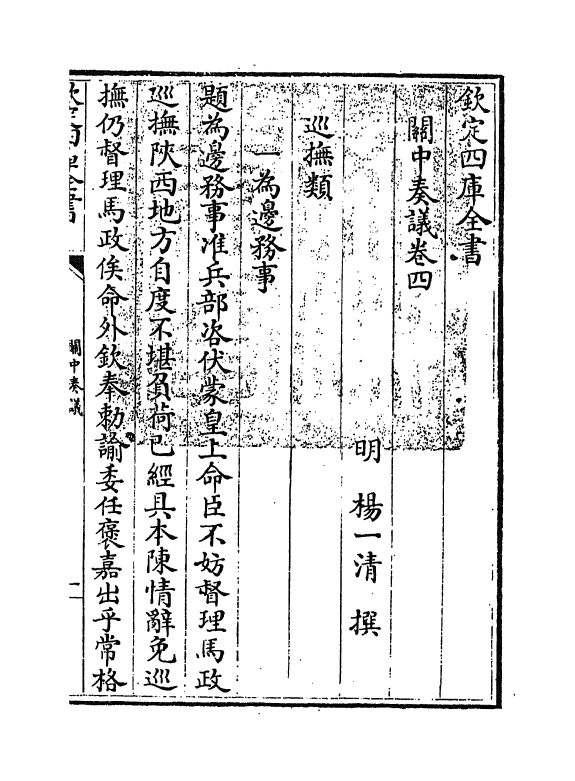 欽定四庫全書
關中奏議卷四
明 楊一清 撰
巡撫類
一為邊務事
題為邊務事准兵部咨伏蒙皇上命臣不妨督理馬政
巡撫陜西地方自度不堪負荷已經具本陳情辭免巡
撫仍督理馬政俟命外欽奉勅諭委任褒嘉出乎常格
欽定四庫全書
關中奏議